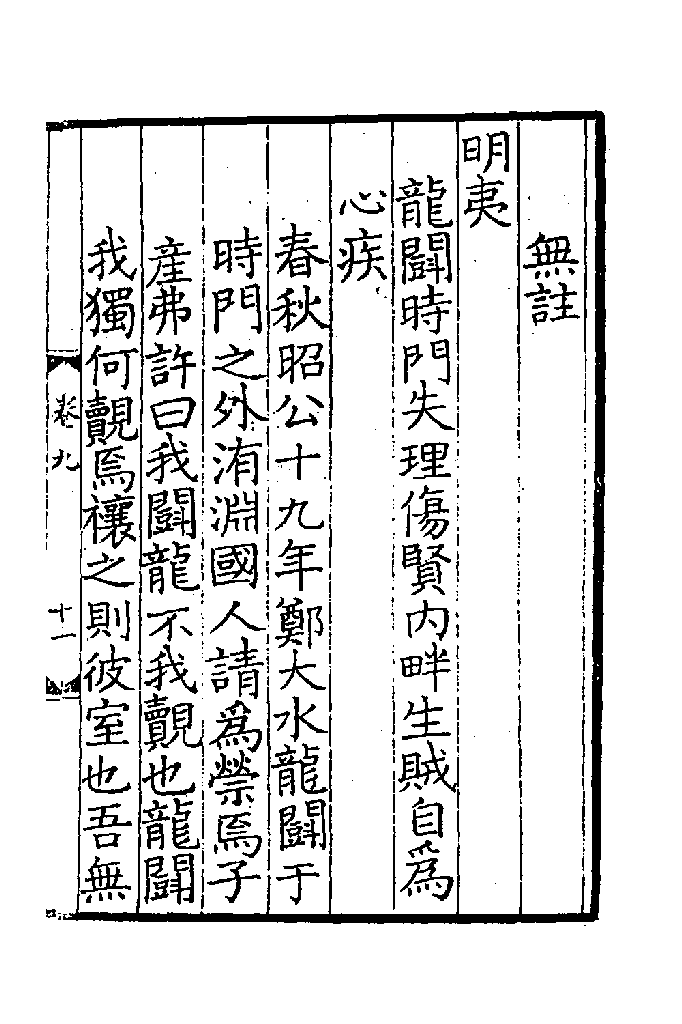 無註
明夷
龍鬪時門失理傷賢内畔生賊自為
心疾
春秋昭公十九年鄭大水龍鬪于
時門之外洧淵國人請為禜焉子
産弗許曰我鬪龍不我覿也龍鬪
我獨何覿焉禳之則彼室也吾無
卷九
十一